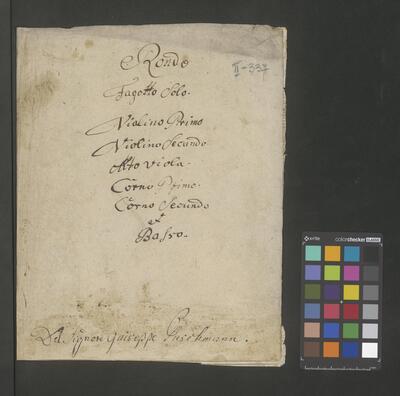 Rondo
II-337
Fagotto Solo.
Violino Primo
Violino Secundo
Alto Viola.
Corno Primo.
Corno Secundo
et
Basso.
Del Signore Guiseppe Puschmann.
x-rite
colorchecker CLASSIC